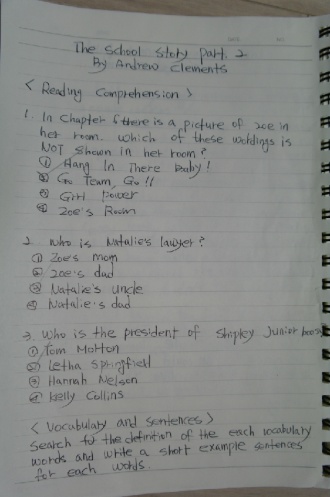 The School Story part. 2
By Andrew Clements
< Reading Comprehension >
1. In Chapter 6 there is a picture of zoe in
her room. Which of these wordings is
NOT shown in her room?
① Hang In There Baby!
② Go Team, Go!!
③ Girl Power
④ Zoe's Room
2. Who is Natalie's lawyer?
① Zoe's mom
② Zoe's dad
③ Natalie's uncle
④ Natalie's dad
3. Who is the president of Shipley Junior books
① Tom Morton
② Letha Springfield
③ Hannah Nelson
④ Kelly Collins
< Vocabulary and sentences >
Search for the definition of the each vocabulary
words and write a short example sentences
for each words.